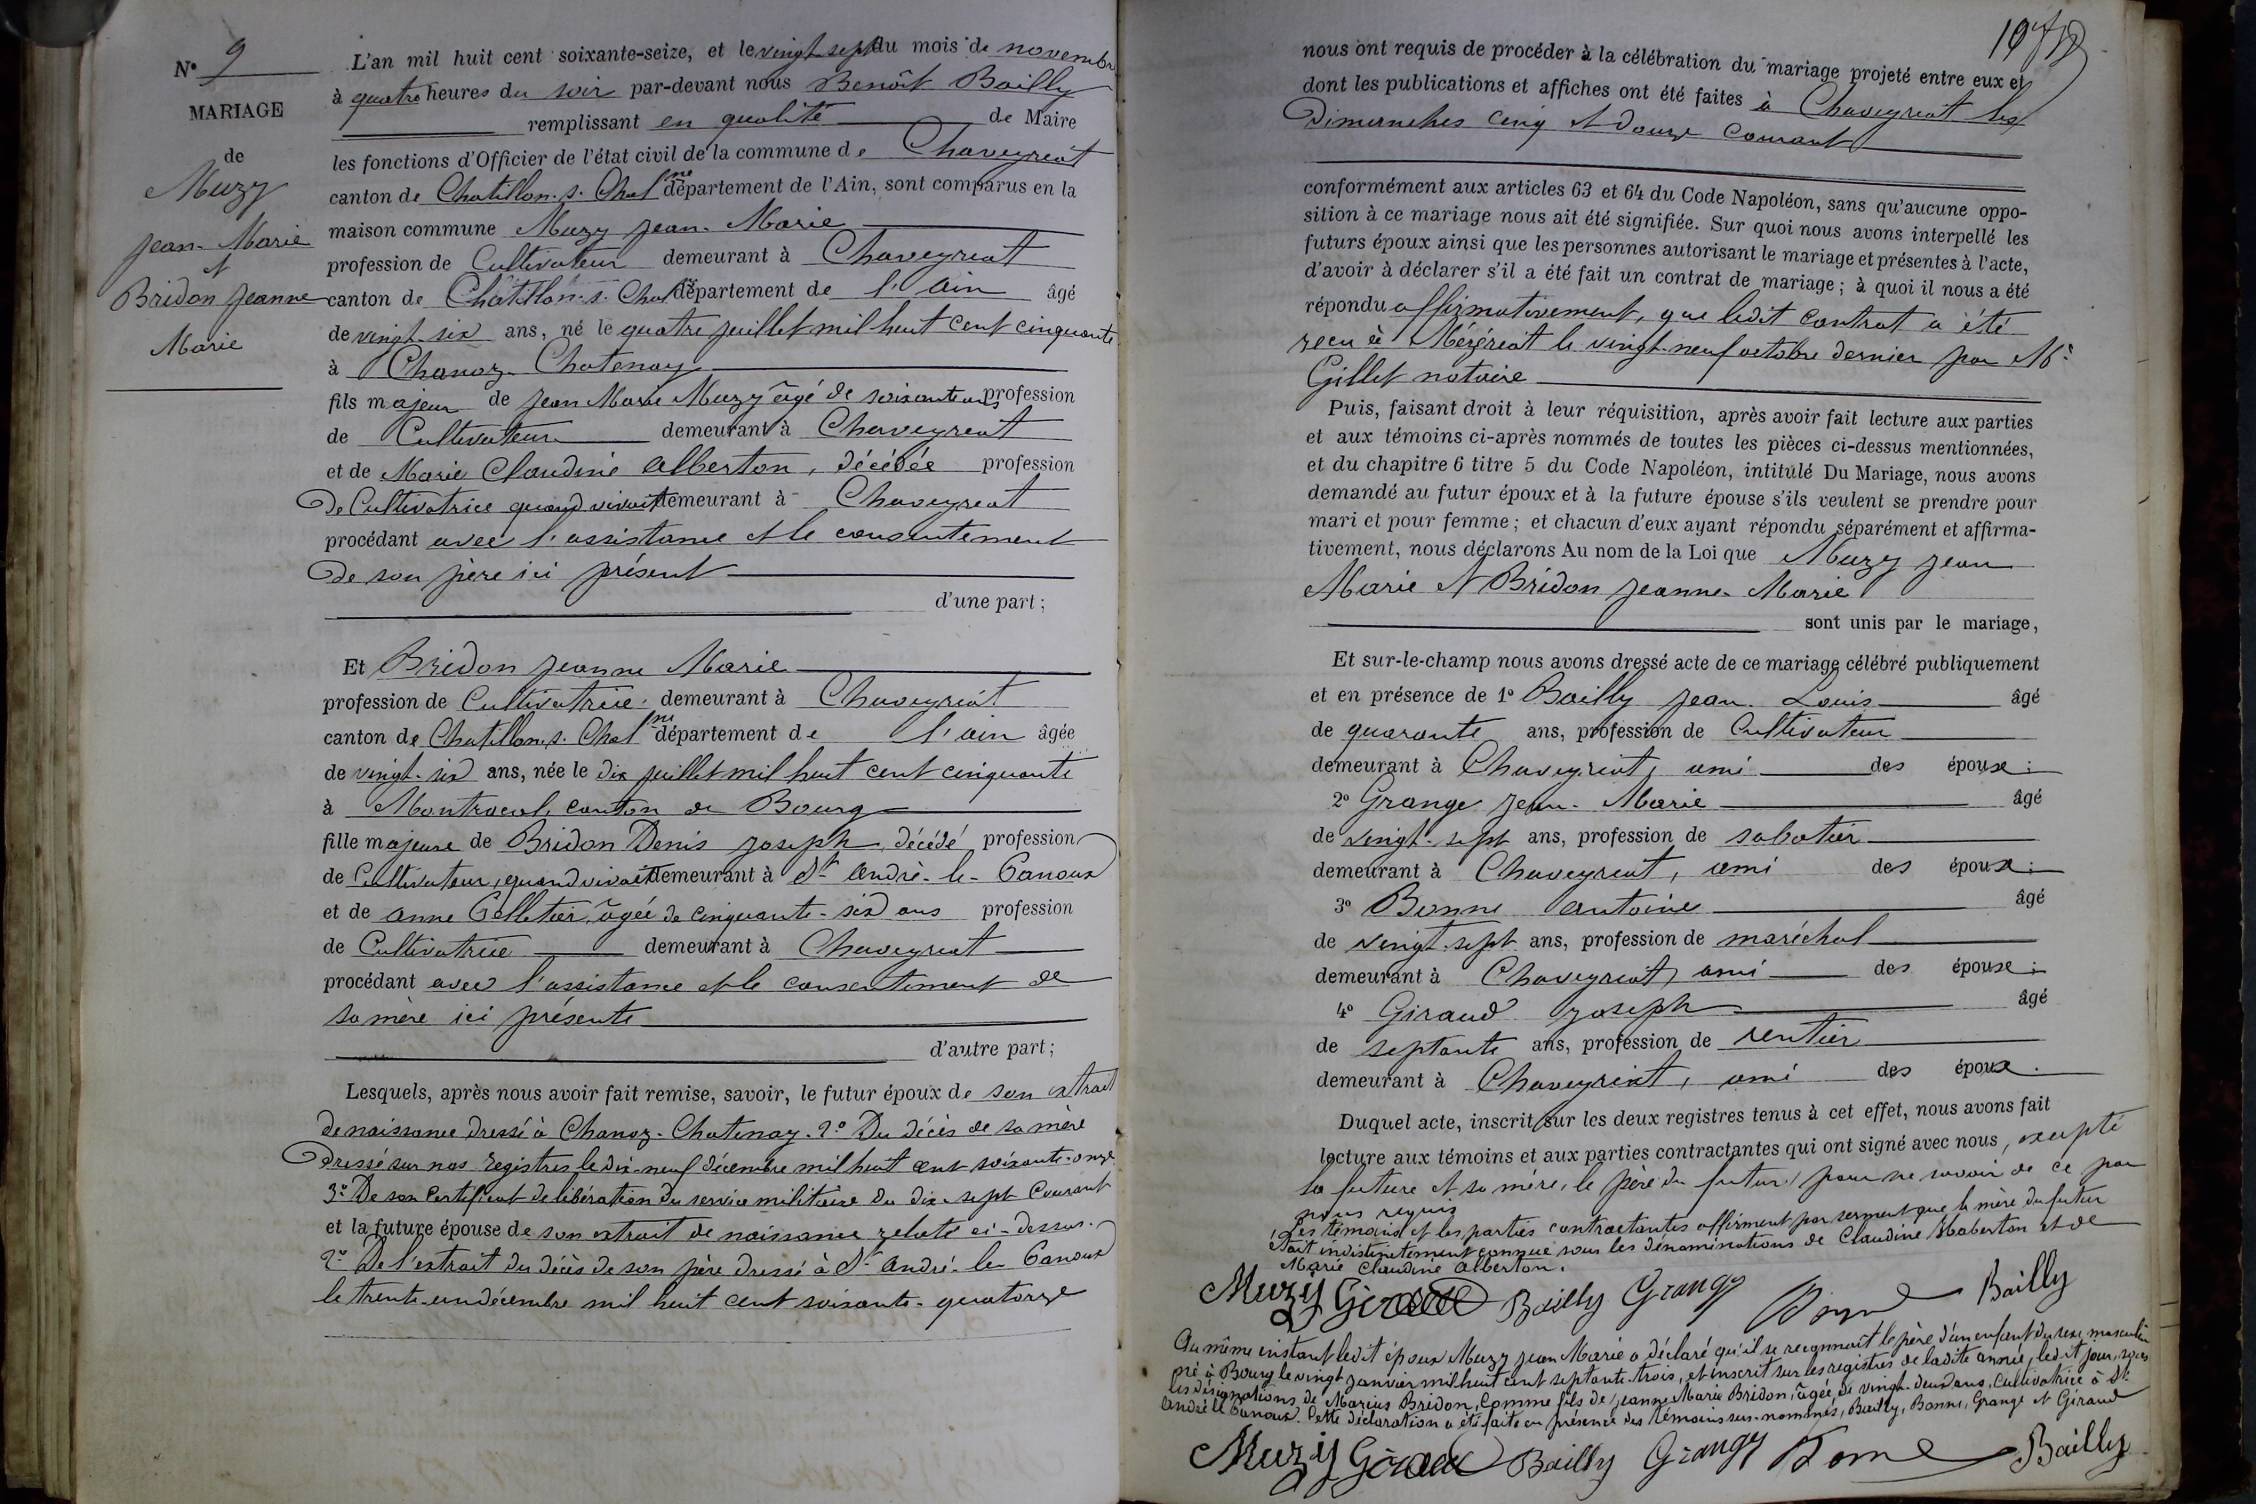 N° 9
MARIAGE
de
Muzy
Jean-Marie
et
Bridon Jeanne
Marie
L'an mil huit cent soixante-seize, et le vingt sept du mois de novembre
à quatre heures du soir par-devant nous Benoît Bailly
remplissant en qualité de Maire
les fonctions d'Officier de l'état civil de la commune de Chaveyriat
canton de Chatillon. s. Chal.ne département de l'Ain, sont comparus en la
maison commune Muzy Jean-Marie
profession de Cultivateur demeurant à Chaveyriat
canton de Châtillon. s. Chal.ne département de l'ain âgé
de vingt-six ans, né le quatre juillet mil huit cent cinquante
à Chanoz-Chatenay
fils majeur de Jean Marie Muzy âgé de soixante ans profession
de Cultivateur demeurant à Chaveyriat
et de Marie Claudine Alberton, décédée profession
de Cultivatrice quand vivait demeurant à Chaveyriat
procédant avec l'assistance et le consentement
de son père ici présent
d'une part;
Et Bridon Jeanne Marie
profession de Cultivatrice demeurant à Chaveyriat
canton de Chatillon. s. Chal.ne département de l'ain âgée
de vingt-six ans, née le dix juillet mil huit cent cinquante
à Montracol, canton de Bourg
fille majeure de Bridon Denis Joseph, décédé profession
de Cultivateur, quand vivait demeurant à St André-le-Panoux
et de Anne Pelletier, âgée de cinquante-six ans profession
de Cultivatrice demeurant à Chaveyriat
procédant avec l'assistance et le consentement de
sa mère ici présente
d'autre part;
Lesquels, après nous avoir fait remise, savoir, le futur époux de son extrait
de naissance dressé à Chanoz-Chatenay. 2° Du décès de sa mère
dressé sur nos registres le dix-neuf décembre mil huit cent soixante-onze.
3° De son certificat de libération du service militaire du dix-sept courant
et la future épouse de son extrait de naissance relaté ci-dessus.
2° De l'extrait du décès de son père dressé à St André-le-Panoux
le trente-un décembre mil huit cent soixante-quatorze
nous ont requis de procéder à la célébration du mariage projeté entre eux et
dont les publications et affiches ont été faites à Chaveyriat les
Dimanches cinq et douze courant
conformément aux articles 63 et 64 du Code Napoléon, sans qu'aucune oppo-
sition à ce mariage nous ait été signifiée. Sur quoi nous avons interpellé les
futurs époux ainsi que les personnes autorisant le mariage et présentes à l'acte,
d'avoir à déclarer s'il a été fait un contrat de mariage; à quoi il nous a été
répondu affirmativement, que ledit contrat a été
reçu à Mézériat le vingt-neuf octobre dernier par Me
Gillet notaire
Puis, faisant droit à leur réquisition, après avoir fait lecture aux parties
et aux témoins ci-après nommés de toutes les pièces ci-dessus mentionnées,
et du chapitre 6 titre 5 du Code Napoléon, intitulé Du Mariage, nous avons
demandé au futur époux et à la future épouse s'ils veulent se prendre pour
mari et pour femme; et chacun d'eux ayant répondu séparément et affirma-
tivement, nous déclarons Au nom de la Loi que Muzy Jean
Marie et Bridon Jeanne-Marie
sont unis par le mariage,
Et sur-le-champ nous avons dressé acte de ce mariage célébré publiquement
et en présence de 1° Bailly Jean-Louis âgé
de quarante ans, profession de Cultivateur
demeurant à Chaveyriat, ami des époux;
2° Grange Jean-Marie âgé
de vingt-sept ans, profession de sabotier
demeurant à Chaveyriat, ami des époux;
3° Bonne Antoine âgé
de vingt-sept ans, profession de maréchal
demeurant à Chaveyriat, ami des époux;
4° Giraud Joseph âgé
de septante ans, profession de rentier
demeurant à Chaveyriat, ami des époux.
Duquel acte, inscrit sur les deux registres tenus à cet effet, nous avons fait
lecture aux témoins et aux parties contractantes qui ont signé avec nous, excepté
la future et sa mère, le père du futur, pour ne savoir de ce par
nous requis
Les témoins et les parties contractantes affirment par serment que la mère du futur
était indistinctement connue sous les dénominations de Claudine Haberton et de
Marie Claudine Alberton.
Muzy Giraud Bailly Grange Bonne Bailly
Au même instant ledit époux Muzy Jean Marie a déclaré qu'il se reconnait le père d'un enfant du sexe masculin
né à Bourg le vingt janvier mil huit cent septante-trois, et inscrit sur les registres de ladite année, ledit jour, sous
les désignations de Marius Bridon, comme fils de Jeanne Marie Bridon, âgée de vingt-deux ans, Cultivatrice à St
André le Panoux. Cette déclaration a été faite en présence des témoins sus-nommés, Bailly, Bonne, Grange et Giraud
Muzy Giraud Bailly Grange Bonne Bailly